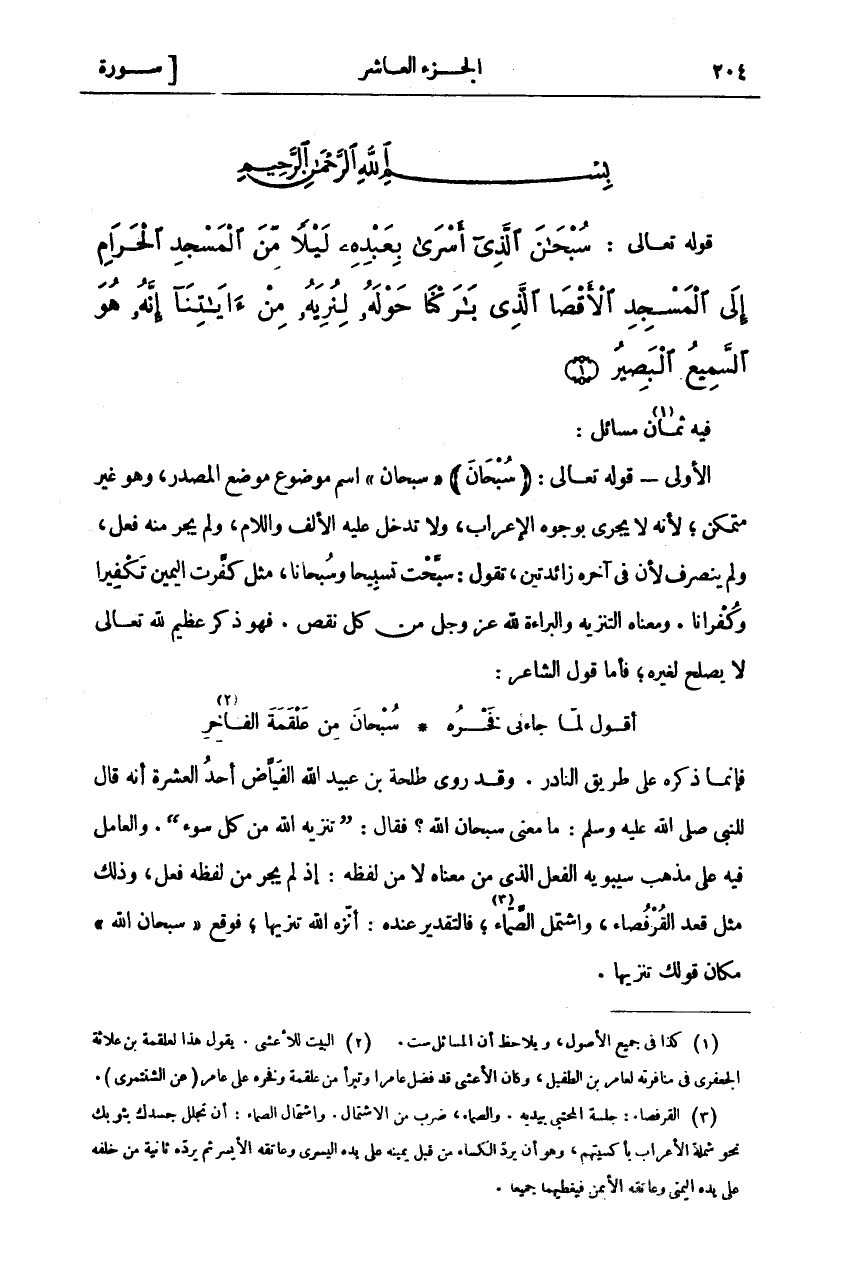 ٢٠٤ الجـــزء العـاشر [ ســـورة
بِسْمِ ٱللَّهِ ٱلرَّحْمَٰنِ ٱلرَّحِيمِ
قوله تعـالى : سُبْحَٰنَ ٱلَّذِىٓ أَسْرَىٰ بِعَبْدِهِۦ لَيْلًا مِّنَ ٱلْمَسْجِدِ ٱلْحَرَامِ
إِلَى ٱلْمَسْجِدِ ٱلْأَقْصَا ٱلَّذِى بَٰرَكْنَا حَوْلَهُۥ لِنُرِيَهُۥ مِنْ ءَايَٰتِنَآ إِنَّهُۥ هُوَ
ٱلسَّمِيعُ ٱلْبَصِيرُ ۝١
فيه ثمـان(١) مسائل :
الأولى — قوله تعـالى : ﴿ سُبْحَانَ ﴾ « سبحان » اسم موضوع موضع المصدر، وهو غير
متمكن ؛ لأنه لا يجرى بوجوه الإعراب، ولا تدخل عليه الألف واللام، ولم يجر منه فعل،
ولم ينصرف لأن فى آخره زائدتين، تقول : سبَّحْت تسبيحا وسُبحانا، مثل كفَّرت اليمين تَكْفِيرا
وكُفْرانا . ومعناه التنزيه والبراءة لله عز وجل من كل نقص . فهو ذكر عظيم لله تعـالى
لا يصلح لغيره؛ فأما قول الشاعر :
أقـول لمّا جاءنى فَخْـرُه * سُبْحانَ مِن عَلْقَمَةَ الفـاخِرِ(٢)
فإنمـا ذكره على طريق النادر . وقـد روى طلحة بن عبيد الله الفيّاض أحدُ العشرة أنه قال
للنبى صلى الله عليه وسلم : ما معنى سبحان الله ؟ فقال : ”تنزيه الله من كل سوء“ . والعامل
فيه على مذهب سيبويه الفعل الذى من معناه لا من لفظه : إذ لم يجر من لفظه فعل، وذلك
مثل قعد القُرْفُصاء، واشتمل الصَّمّاء(٣)؛ فالتقدير عنده : أنزّه الله تنزيها ؛ فوقع « سبحان الله »
مكان قولك تنزيها .
(١) كذا فى جميع الأصول، ويلاحظ أن المسائل ست . (٢) البيت للأعشى . يقول هذا لعلقمة بن علاثة
الجعفرى فى منافرته لعامر بن الطفيل، وكان الأعشى قد فضل عامرا وتبرأ من علقمة وفخره على عامر (عن الشنتمرى) .
(٣) القرفصاء : جلسة المحتبى بيديه . والصماء، ضرب من الاشتمال . واشتمال الصماء : أن تجلل جسدك بثوبك
نحو شملة الأعراب بأكسيتهم، وهو أن يردّ الكساء من قبل يمينه على يده اليسرى وعاتقه الأيسر ثم يردّه ثانية من خلفه
على يده اليمنى وعاتقه الأيمن فيغطيهما جميعا .